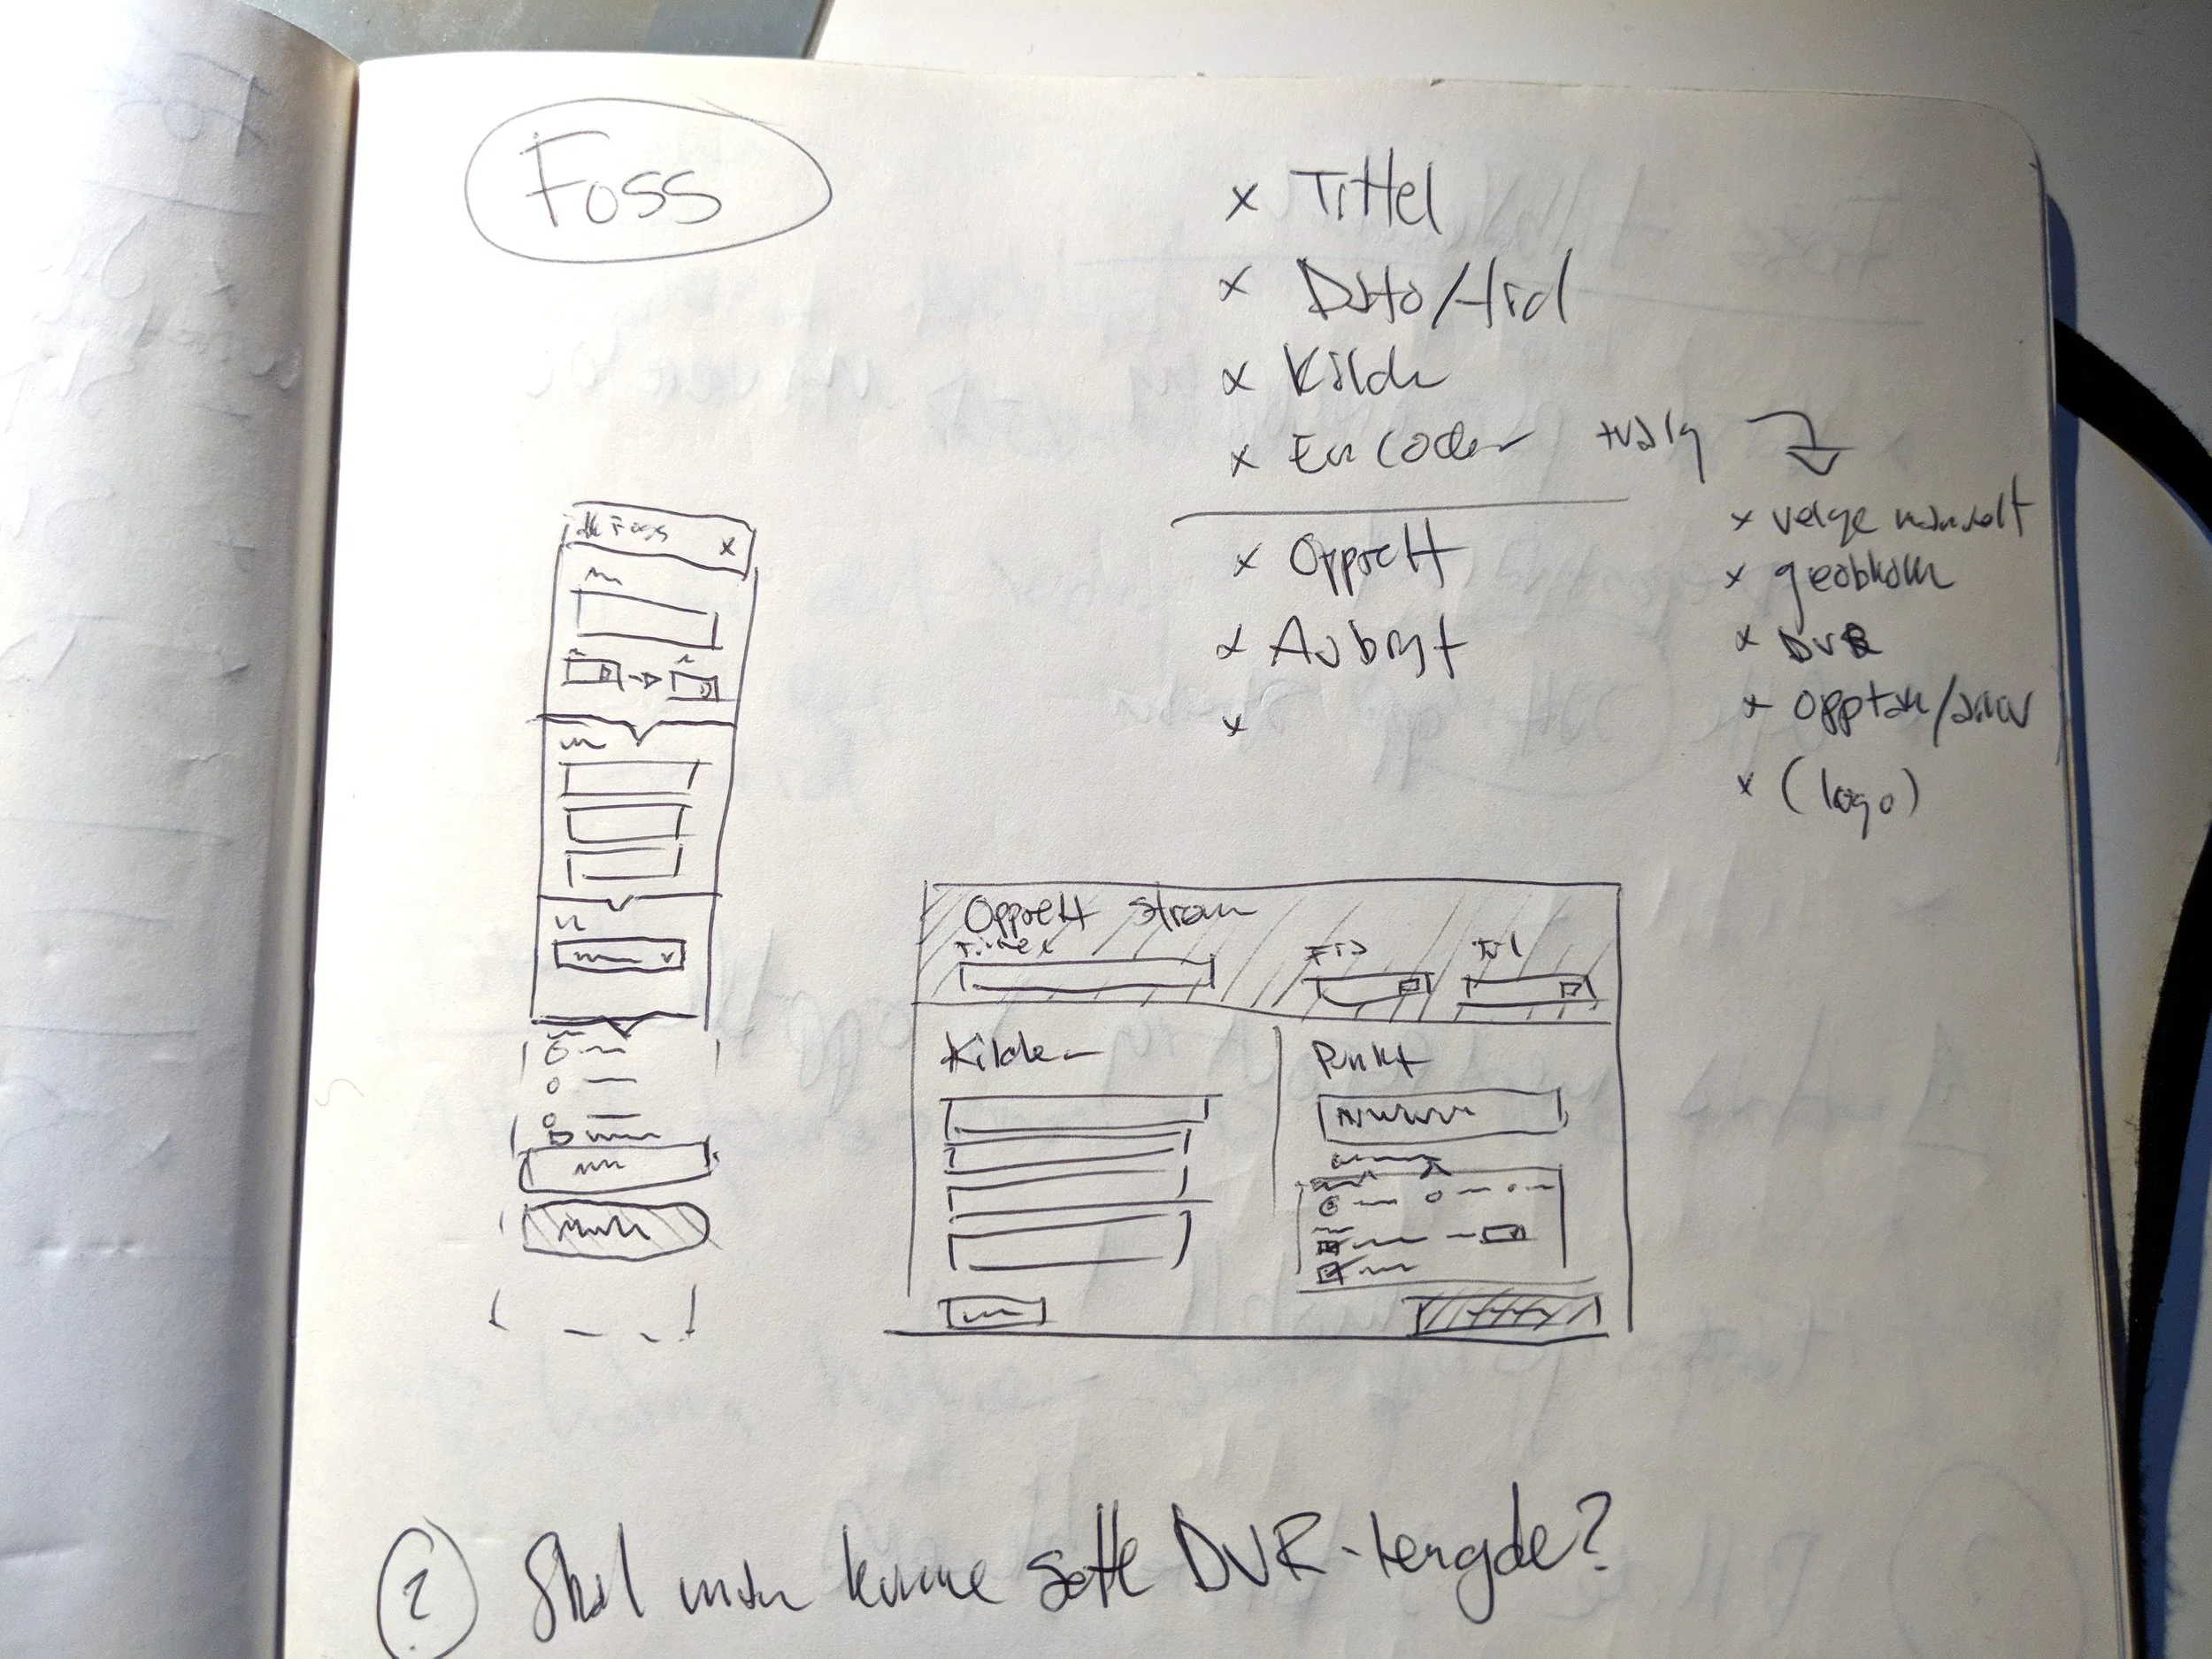 Foss
x Tittel
x Dato/tid
x Kilde
x Encoder +valg
x velge manuelt
x geoblokk
x DVR
x Opptak/arkiv
x (logo)
x Opprett
x Avbryt
x
Foss x
Opprett strøm
Tittel Fra Til
Kilder
Punkt
? Skal man kunne sette DVR-lengde?